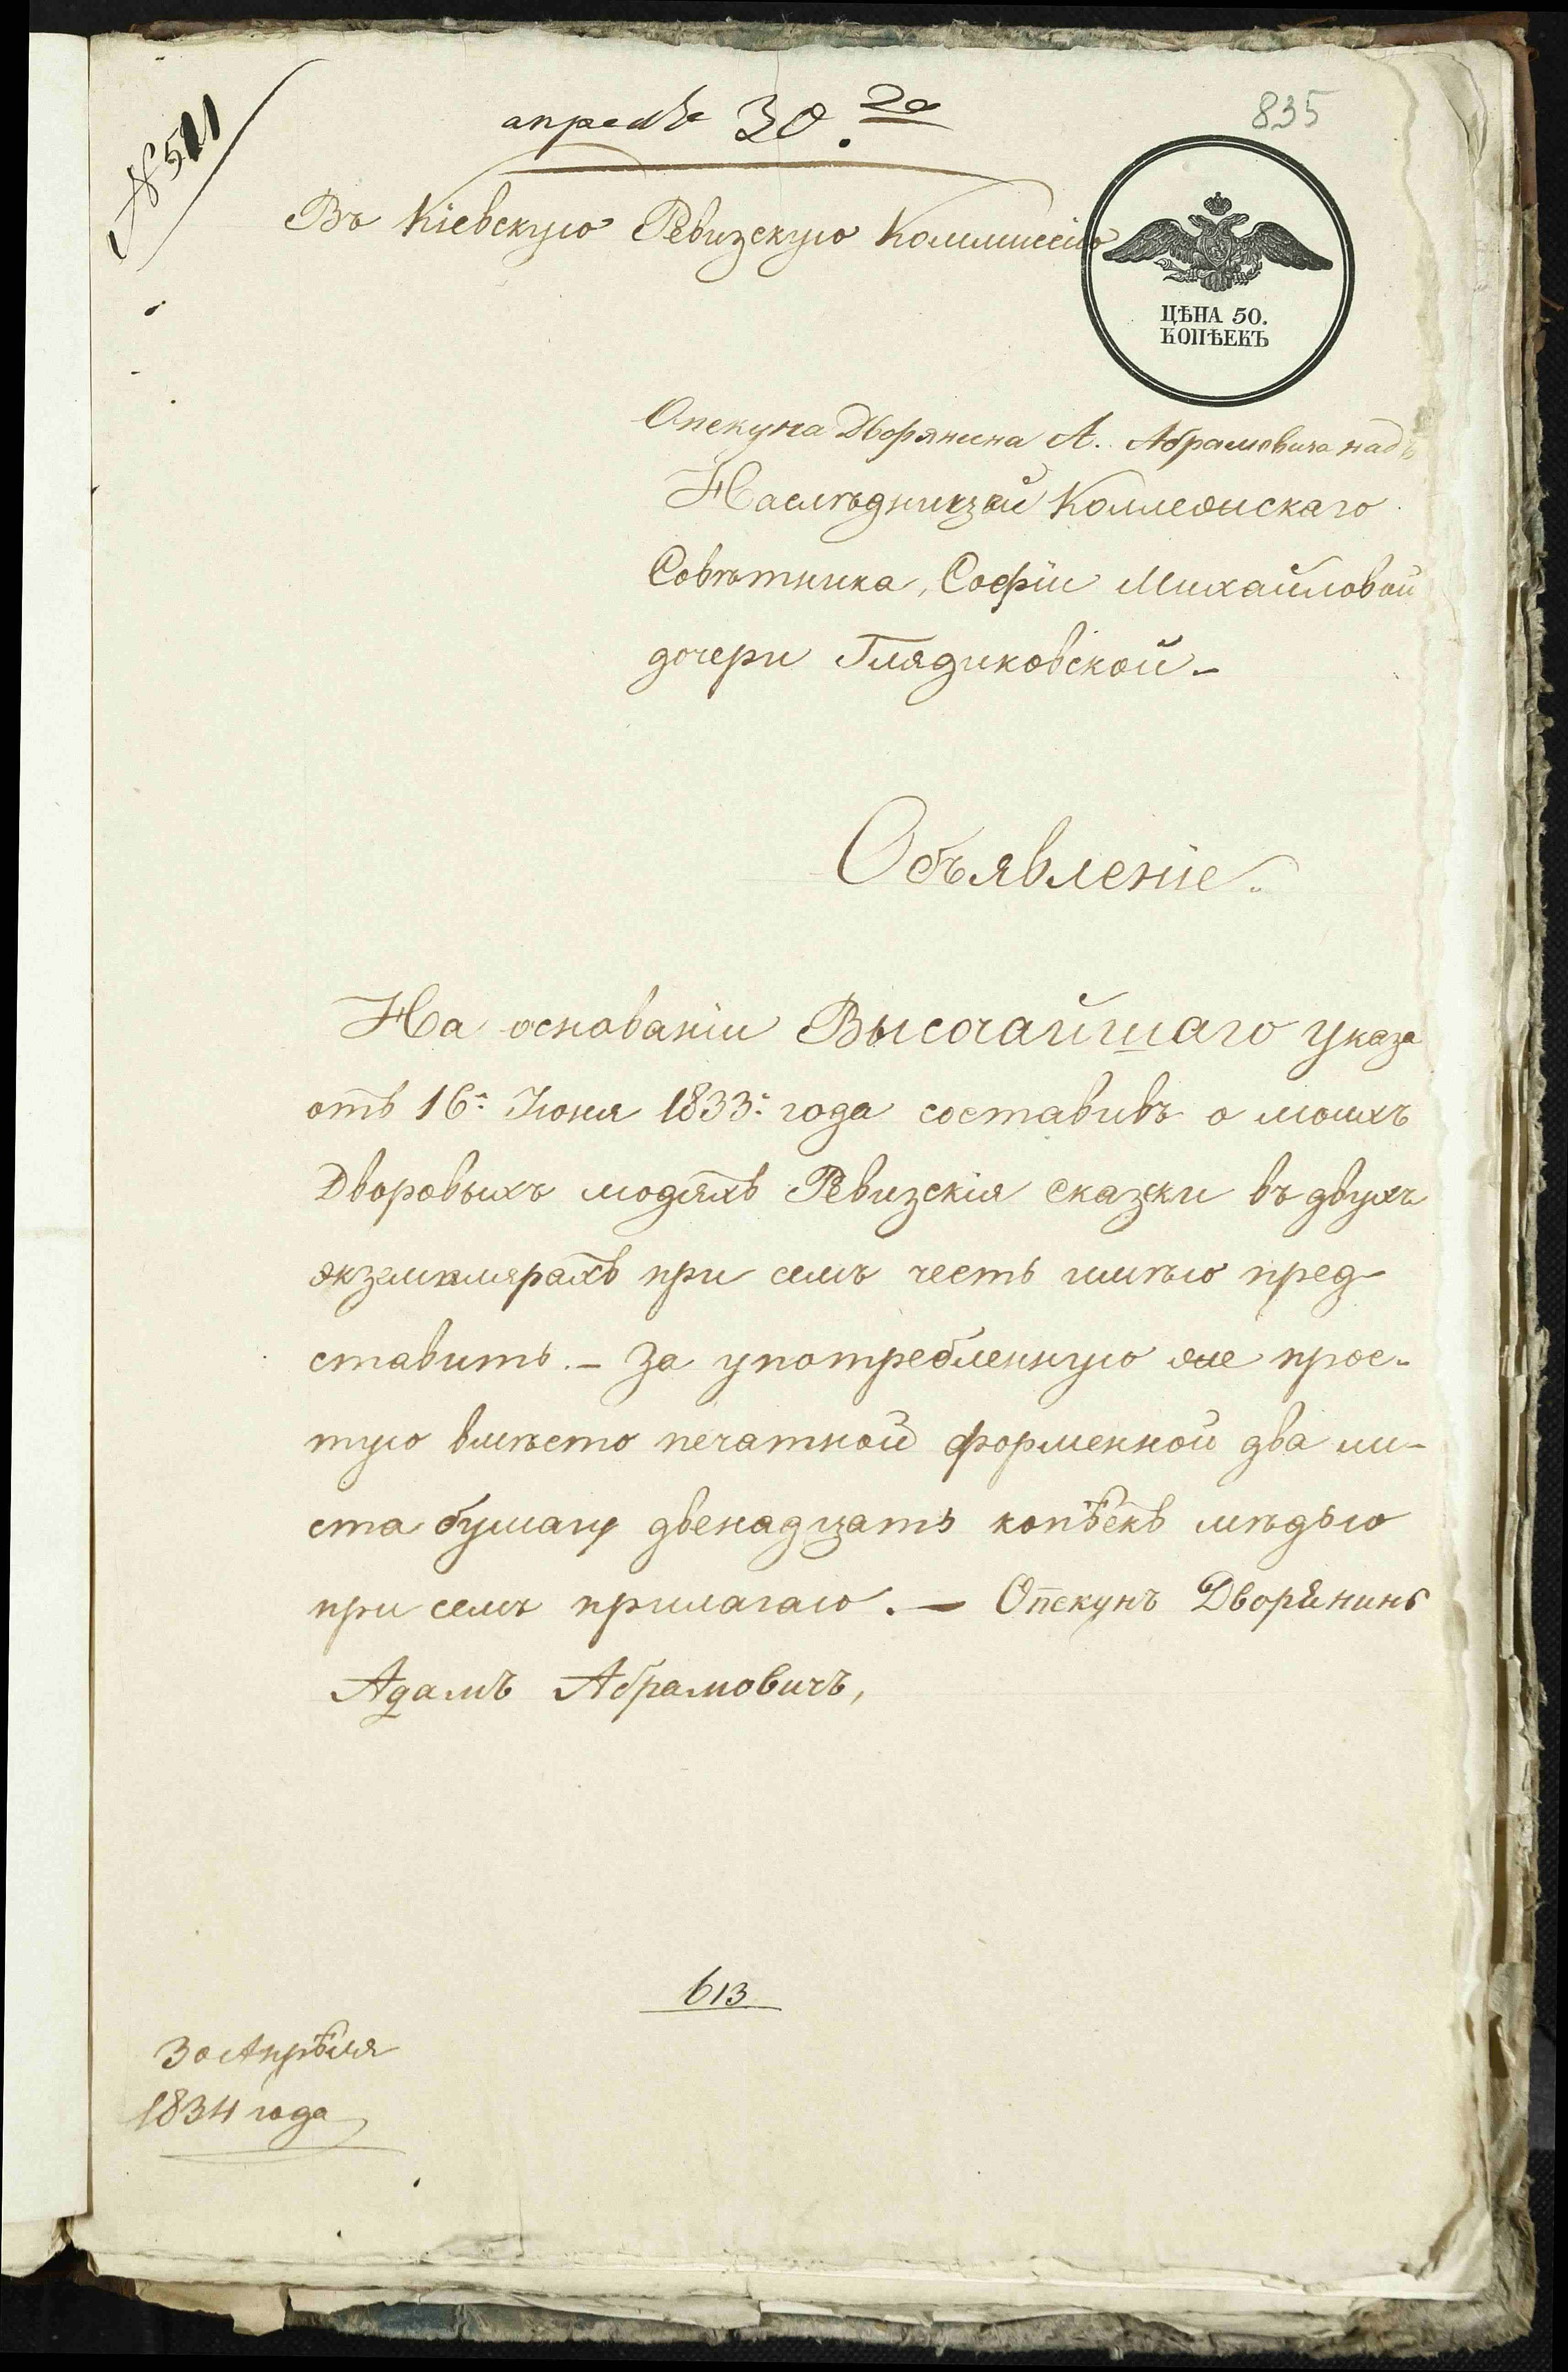 № 511
апрель 30.го
835
Въ Кіевскую Ревизскую Коммиссію
ЦѢНА 50.
КОПѢЕКЪ
Опекуна Дворянина А. Абрамовича надъ
Наслѣдницѣй Коллежскаго
Совѣтника, Софіи Михайловой
дочери Глядиковской –
Объявленіе.
На основаніи Высочайшаго указа
отъ 16го Іюня 1833го года составивъ о моихъ
Дворовыхъ людяхъ Ревизскія сказки въ двухъ
экземплярахъ при семъ честь имѣю пред-
ставить. – За употребленную же прос-
тую вмѣсто печатной форменной два ли-
ста бумагу двенадцать копѣекъ мѣдью
при семъ прилагаю. – Опекунъ Дворянинъ
Адамъ Абрамовичъ,
613
30 Апрѣля
1834 года